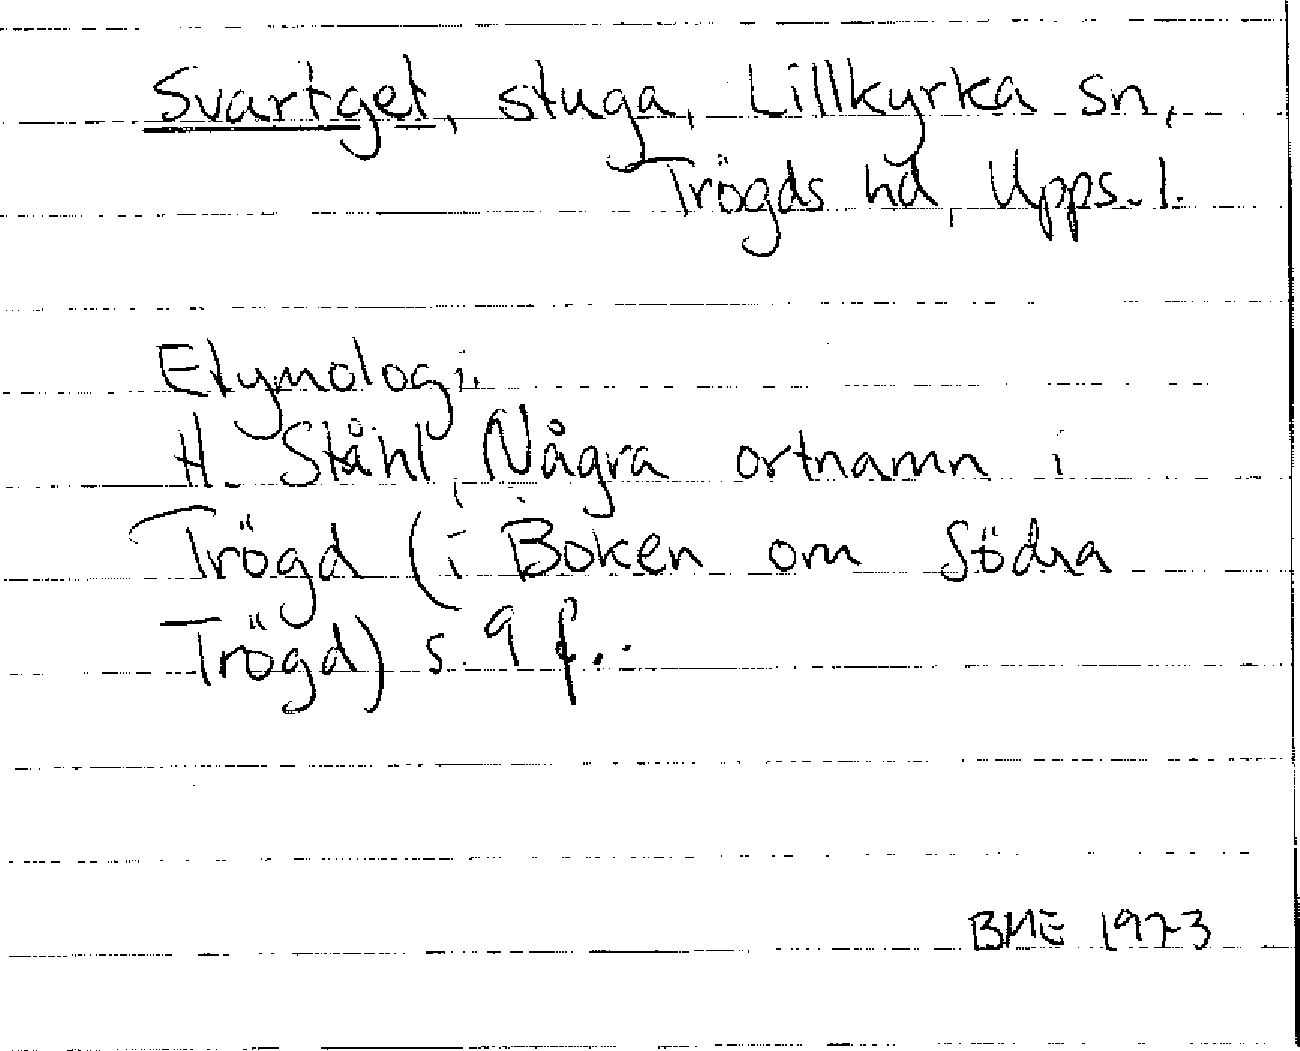 Svartget, stuga, Lillkyrka sn,
Trögds hd, Upps. l.
Etymologi.
H. Ståhl, Några ortnamn i
Trögd (i Boken om Södra
Trögd) s. 9 f.
BME 1973